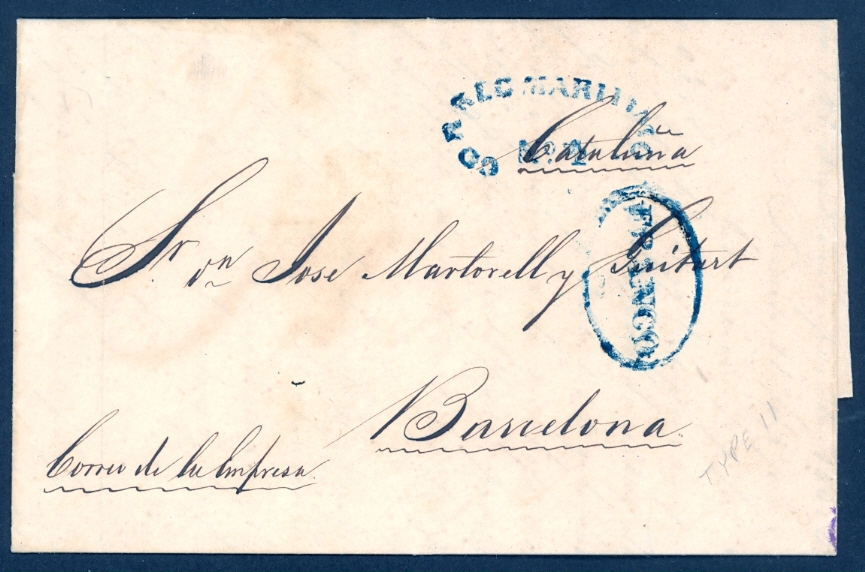 CORREO MARITIMO
No. 2
Cataluña
FRANCO
Sr. Dn. Jose Martorell y Guitart
Barcelona
Correo de la Empresa.
TYPE II